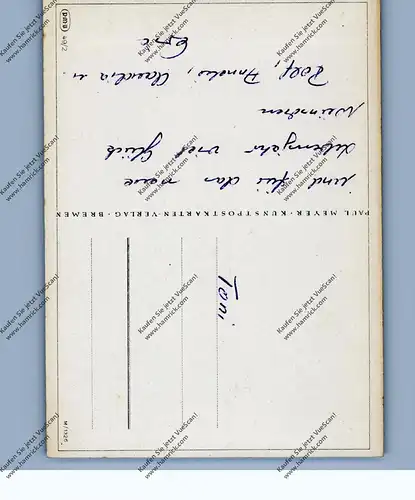 und für das neue
Lebensjahr viel Glück
wünschen
Rolf, Annelie, Claudia u.
Toni
PAUL MEYER · KUNSTPOSTKARTEN-VERLAG · BREMEN
pmb
49/2
M/1326
Kaufen Sie jetzt VueScan!
www.hamrick.com